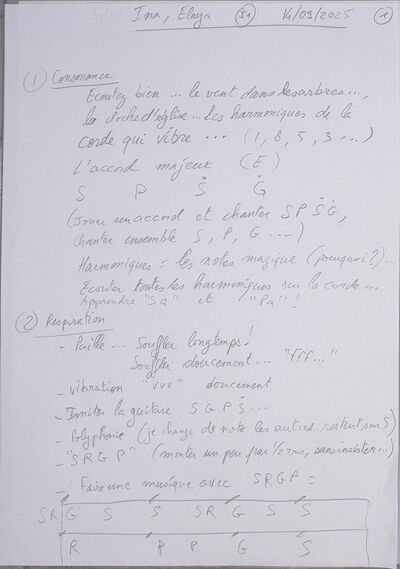 Ina, Elaya (S1) 14/09/2025 (1)
(1) Consonance
Ecoutez bien... le vent dans les arbres...,
la cloche d'église... les harmoniques de la
corde qui vibre ... (1, 8, 5, 3 ...)
L'accord majeur (E)
S P Ṡ Ġ
(Jouer un accord et chanter S P Ṡ Ġ,
chanter ensemble S, P, G ....)
Harmoniques = les notes magique (pourquoi?)...
Ecouter toutes les harmoniques sur la corde...
Apprendre "Sa" et "Pa"!
(2) Respiration
- Paille... Souffler longtemps!
Souffler doucement... "fff..."
- vibration "vvv" doucement
- Imiter la guitare S G P Ṡ...
- Polyphonie (je change de note les autres restent sur S)
- "S R G P" (monter un peu par 1/2 tons, sans insister...)
- Faire une musique avec S R G P =
SR G S S SR G S S
R P P G S